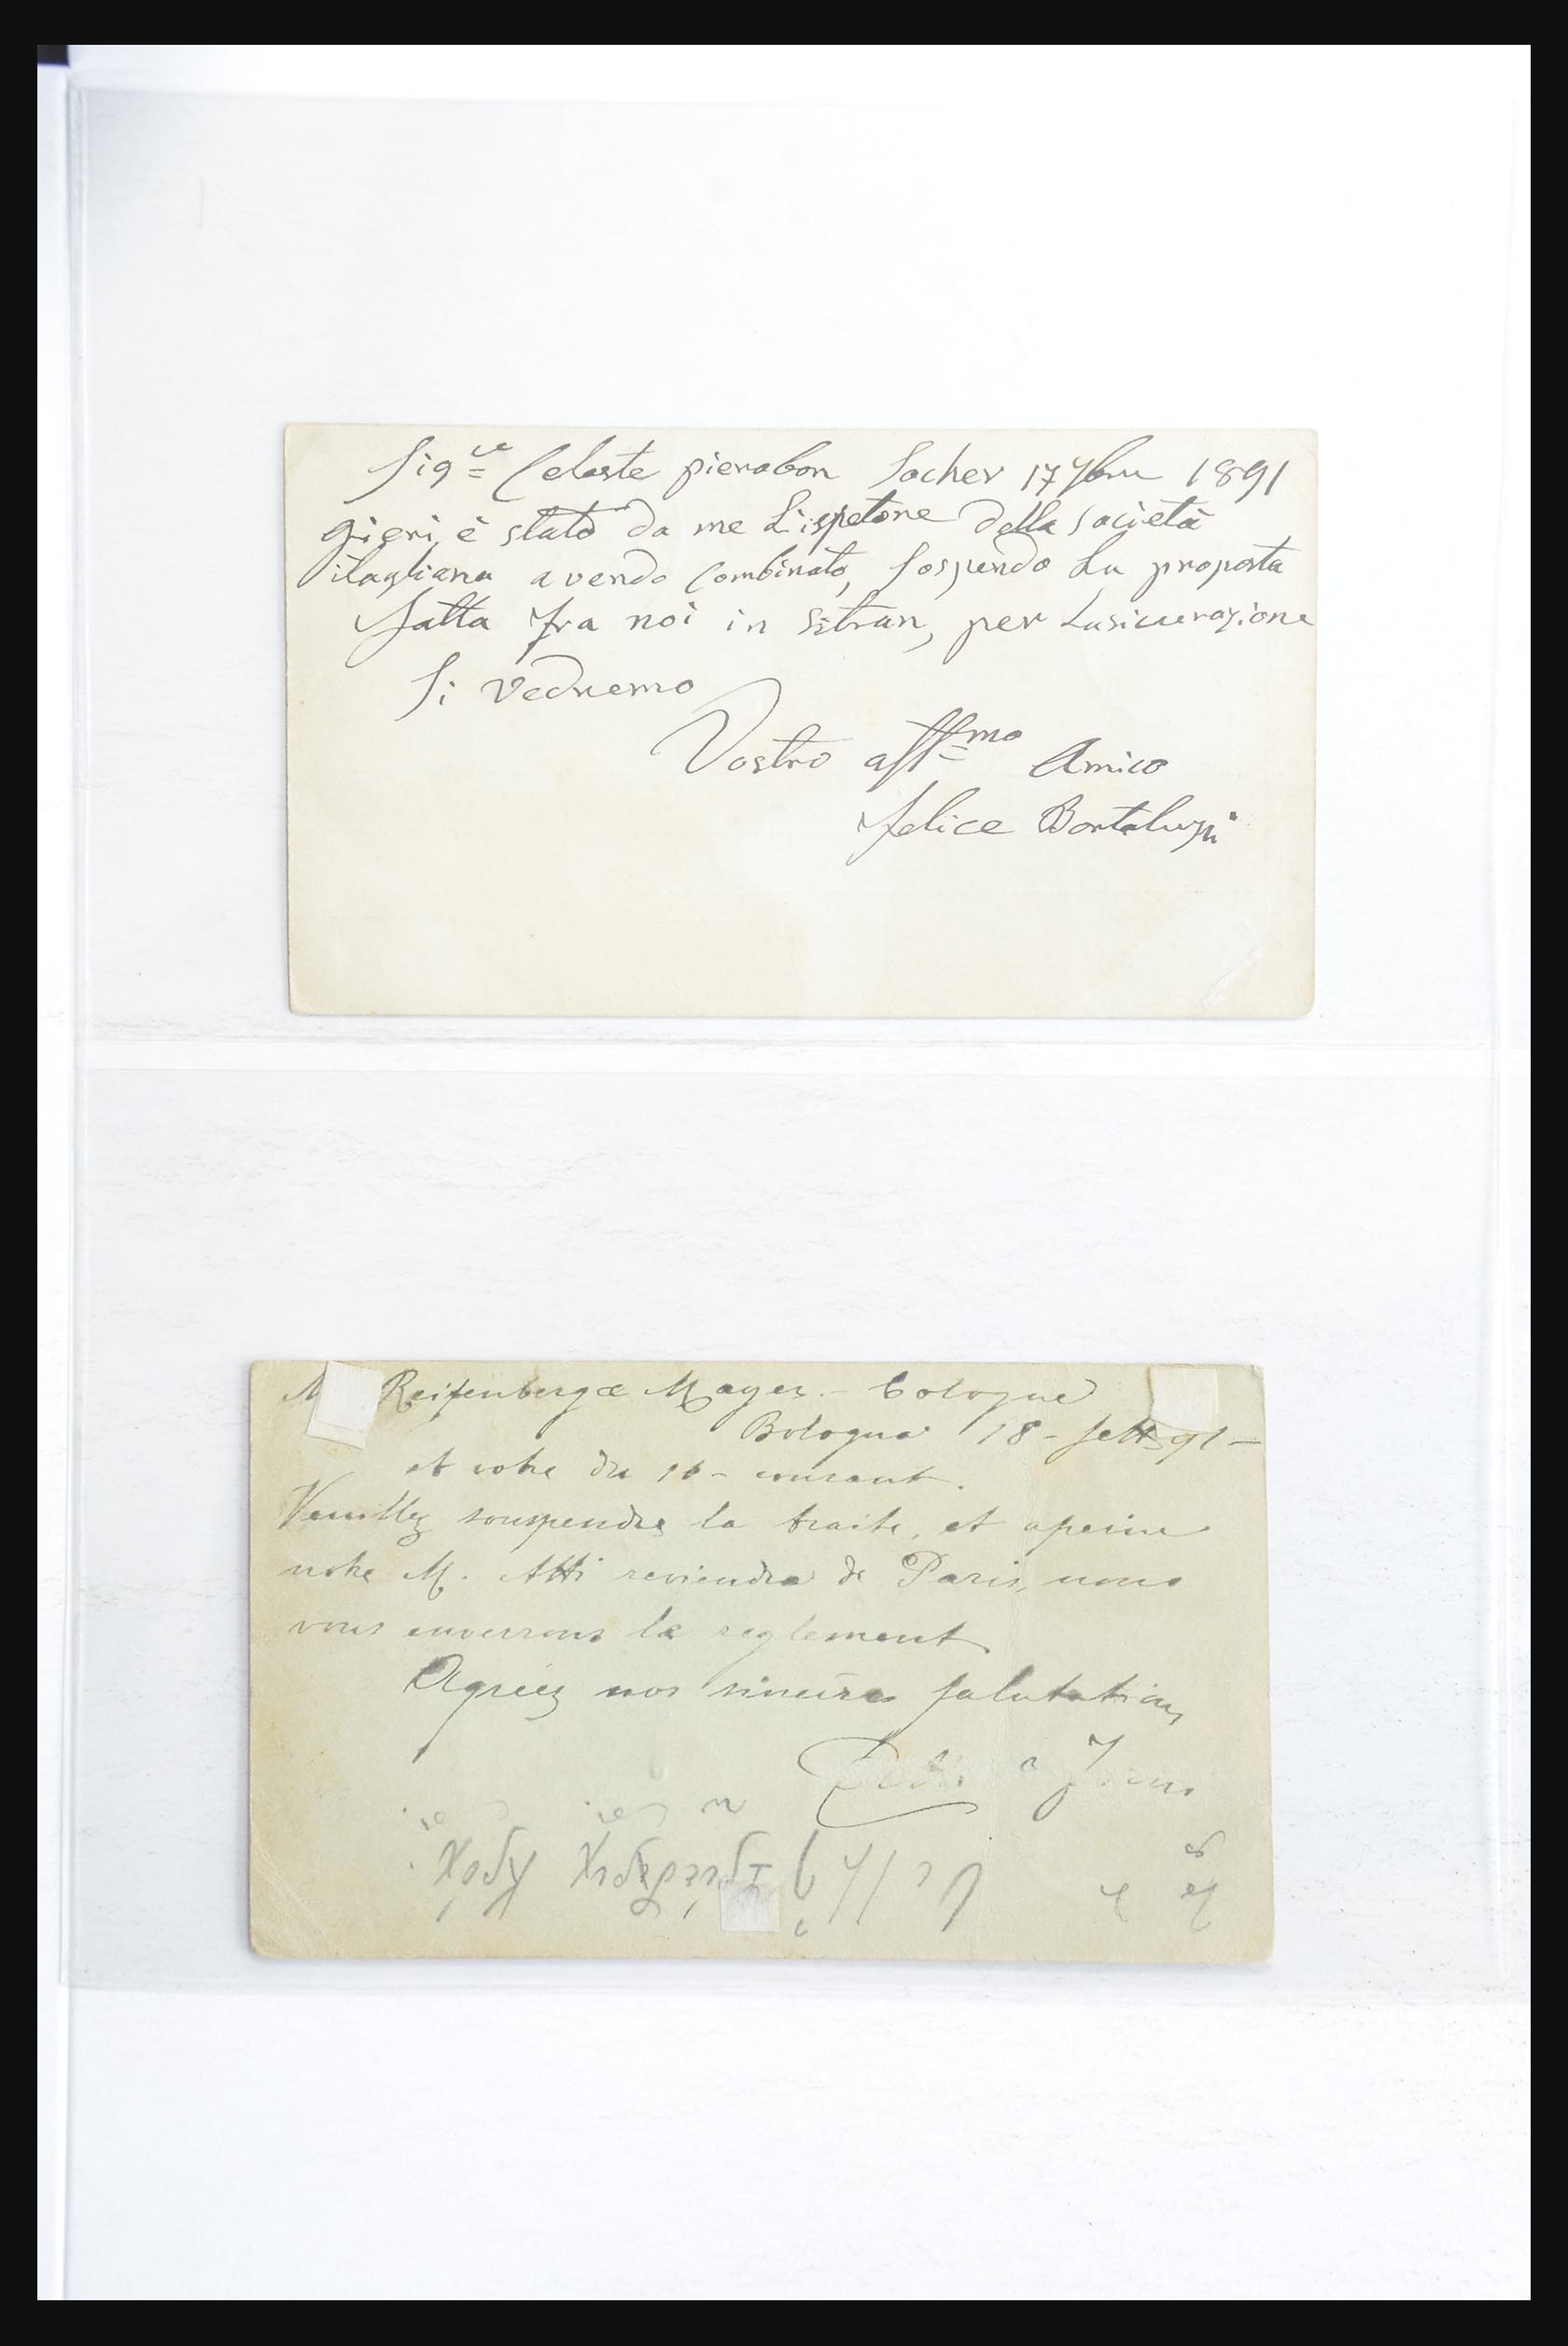 Sig.re Celeste pierobon Socher 17 7bre 1891
gieri, è stato da me L'ispetore della società
itagliana avendo Combinato, Sospendo La proposta
fatta fra noi in Sitran, per Lasicurazione
Si vedremo
Vostro aff.mo Amico
felice Bortoluzzi
Reifenberg & Mayer - Cologne
Bologna 18 - Sett 91 -
et votre du 16 - courant.
Veuillez souspendre la traite, et apeine
notre M. Atti reviendra de Paris, nous
vous enverrons le reglement
Agréez nos sincéres Salutations